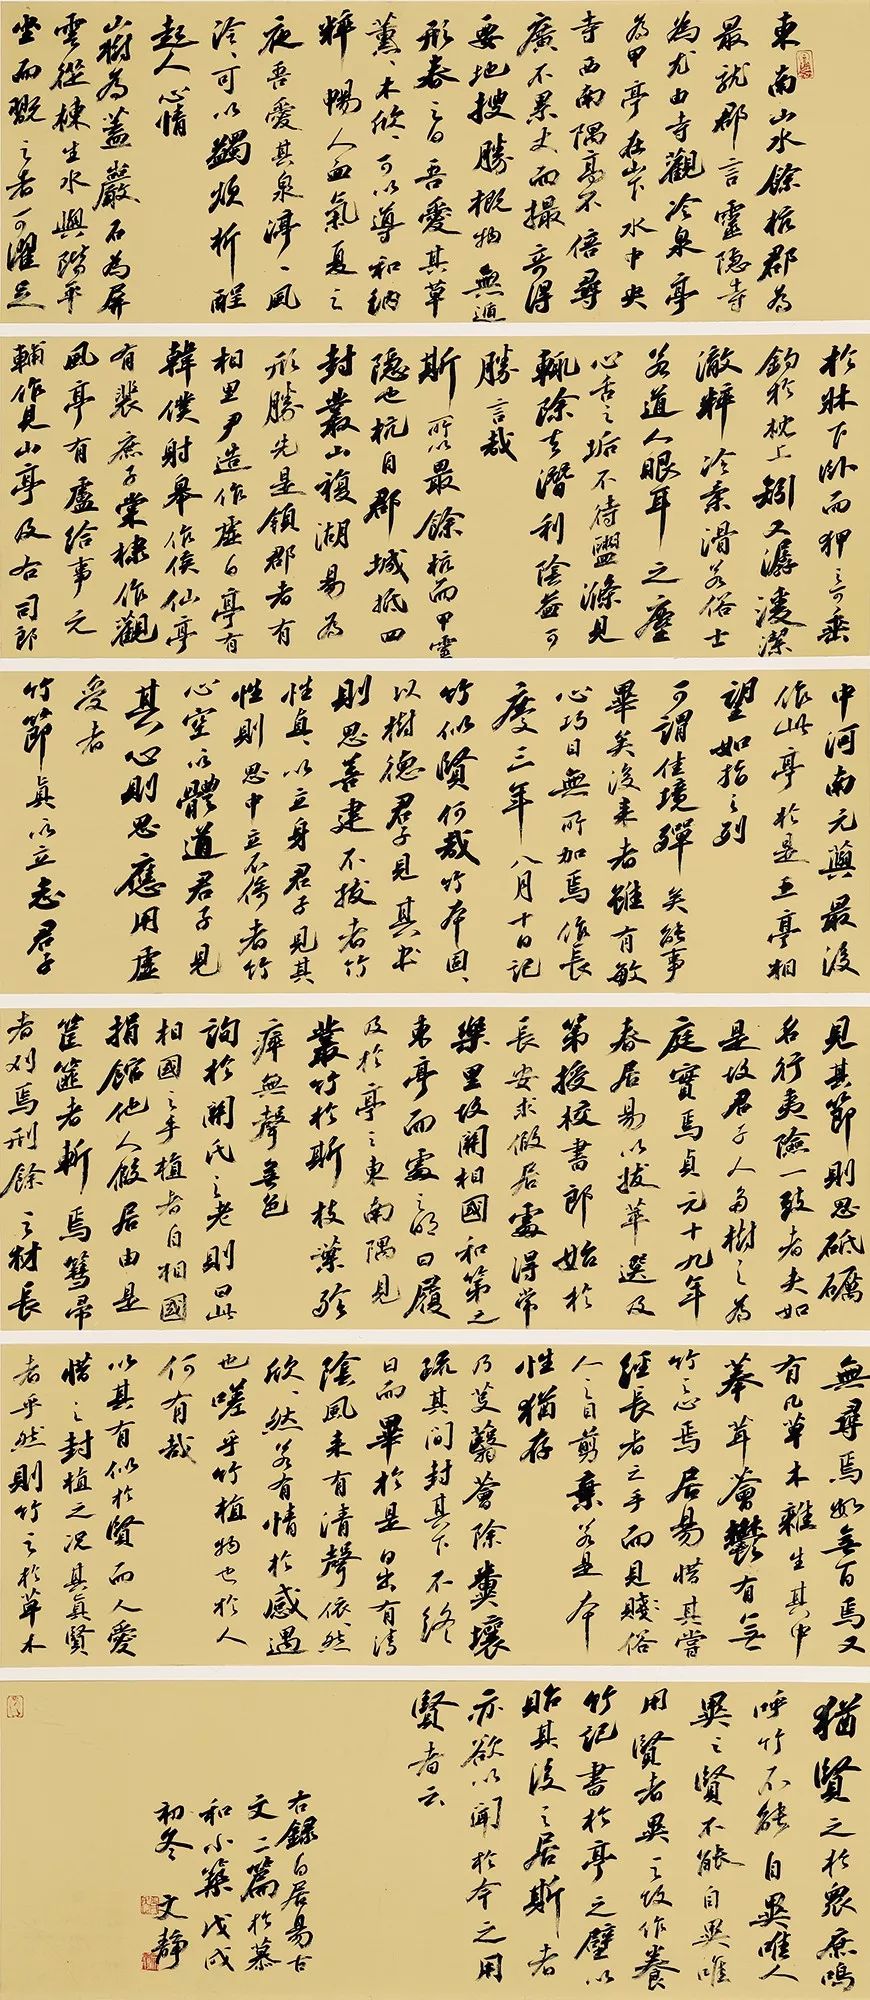 東南山水餘杭郡為
最就郡言靈隱寺
為尤由寺觀冷泉亭
為甲亭在山下水中央
寺西南隅高不倍尋
廣不累丈而撮奇得
要地搜勝概物無遁
形春之日吾愛其草
薰〻木欣〻可以導和納
粹暢人血氣夏之
夜吾愛其泉渟〻風
泠〻可以蠲煩析酲
起人心情
山樹為蓋巖石為屏
雲從棟生水與階平
坐而翫之者可濯足
於牀下臥而狎之可垂
釣於枕上矧又潺湲潔
澈粹冷柔滑若俗士
若道人眼耳之塵
心舌之垢不待盥滌見
輒除去潛利陰益可
勝言哉
斯所以最餘杭而甲靈
隱也杭自郡城抵四
封叢山複湖易為
形勝先是領郡者有
相里尹造作虛白亭有
韓僕射皋作候仙亭
有裴庶子棠棣作觀
風亭有盧給事元
輔作見山亭及右司郎
中河南元藇最後
作此亭於是五亭相
望如指之列
可謂佳境殫矣能事
畢矣後來者雖有敏
心巧目無所加焉作長
慶三年八月十日記
竹似賢何哉竹本固〻
以樹德君子見其本
則思善建不拔者竹
性直〻以立身君子見其
性則思中立不倚者竹
心空以體道君子見
其心則思應用虛
受者
竹節貞以立志君子
見其節則思砥礪
名行夷險一致者夫如
是故君子人多樹之為
庭實焉貞元十九年
春居易以拔萃選及
第授校書郎始於
長安求假居處得常
樂里故關相國私第之
東亭而處之明日履
及於亭之東南隅見
叢竹於斯枝葉殄
瘁無聲無色
詢於關氏之老則曰此
相國之手植者自相國
捐館他人假居由是
筐篚者斬焉篲帚
者刈焉刑餘之材長
無尋焉數無百焉又
有凡草木雜生其中
菶茸薈鬱有無
竹之心焉居易惜其嘗
經長者之手而見賤俗
人之目剪棄若是本
性猶存
乃芟蘙薈除糞壤
疏其間封其下不終
日而畢於是日出有清
陰風來有清聲依〻然
欣〻然若有情於感遇
也嗟乎竹植物也於人
何有哉
以其有似於賢而人愛
惜之封植之況其真賢
者乎然則竹之於草木
猶賢之於眾庶嗚
呼竹不能自異唯人
異之賢不能自異唯
用賢者異之故作養
竹記書於亭之壁以
貽其後之居斯者
亦欲以聞於今之用
賢者云
右錄白居易古
文二篇於慕
和小築戊戌
初冬 文靜